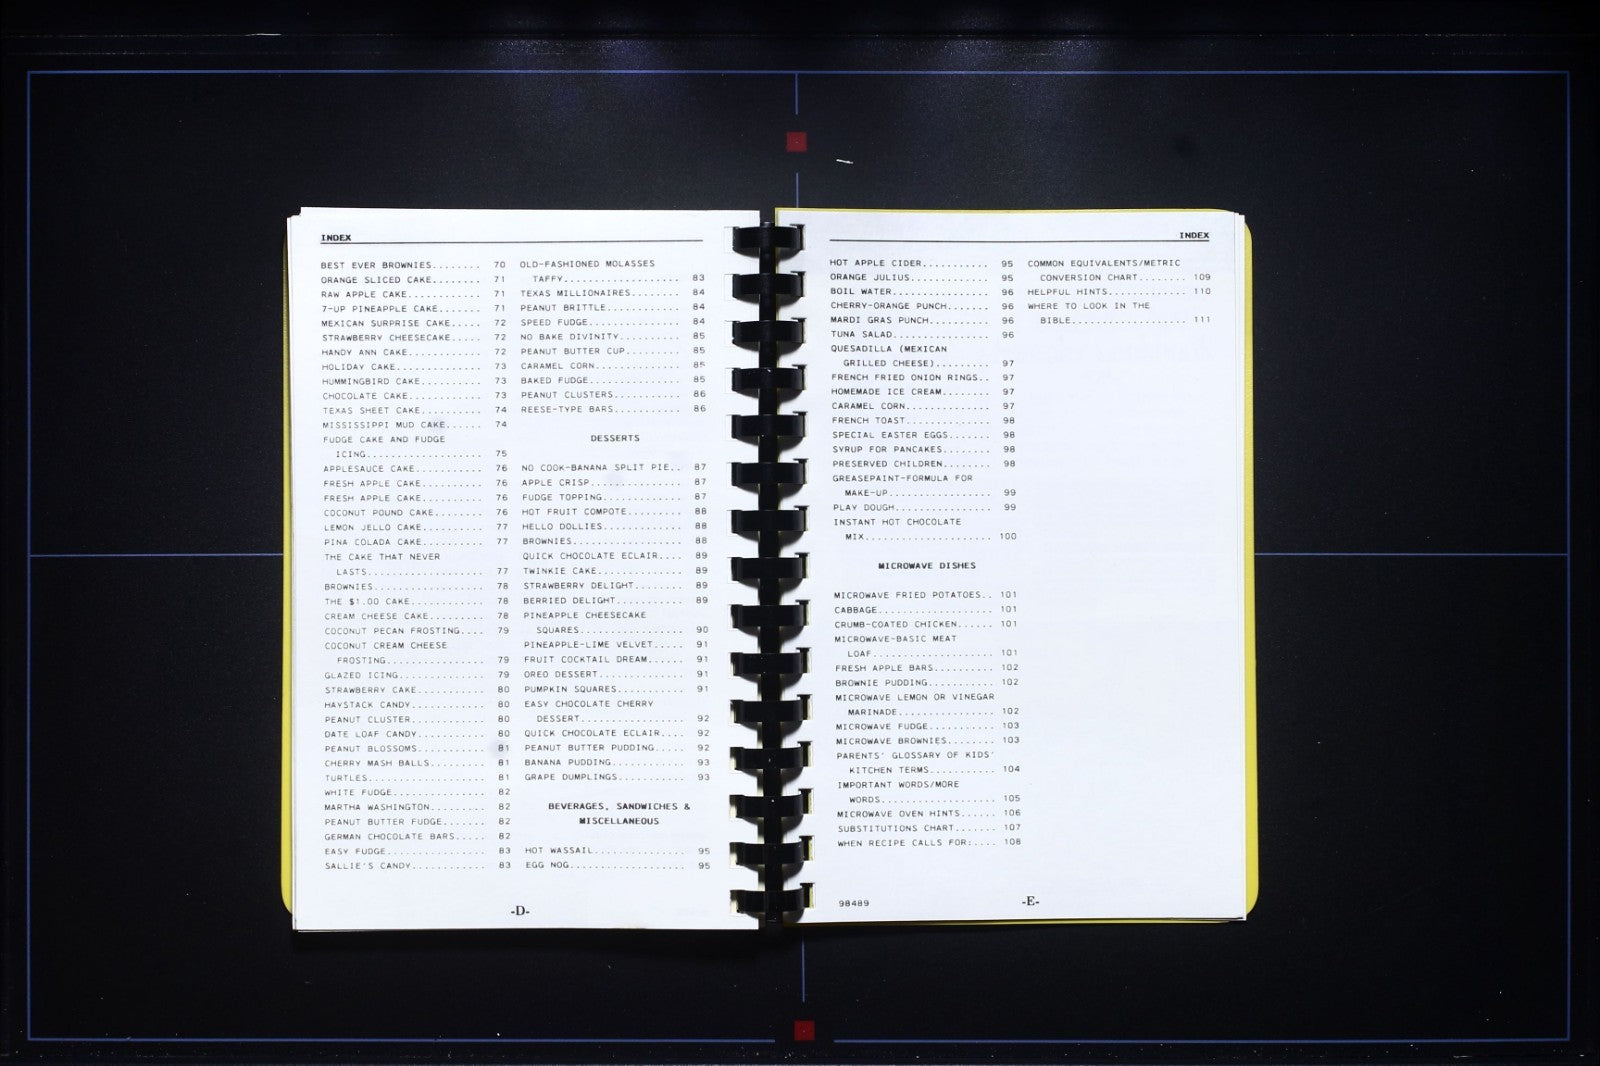 INDEX
BEST EVER BROWNIES........ 70
ORANGE SLICED CAKE........ 71
RAW APPLE CAKE............ 71
7-UP PINEAPPLE CAKE....... 71
MEXICAN SURPRISE CAKE..... 72
STRAWBERRY CHEESECAKE..... 72
HANDY ANN CAKE............ 72
HOLIDAY CAKE.............. 73
HUMMINGBIRD CAKE.......... 73
CHOCOLATE CAKE............ 73
TEXAS SHEET CAKE.......... 74
MISSISSIPPI MUD CAKE...... 74
FUDGE CAKE AND FUDGE
ICING................... 75
APPLESAUCE CAKE........... 76
FRESH APPLE CAKE.......... 76
FRESH APPLE CAKE.......... 76
COCONUT POUND CAKE........ 76
LEMON JELLO CAKE.......... 77
PINA COLADA CAKE.......... 77
THE CAKE THAT NEVER
LASTS................... 77
BROWNIES.................. 78
THE $1.00 CAKE............ 78
CREAM CHEESE CAKE......... 78
COCONUT PECAN FROSTING.... 79
COCONUT CREAM CHEESE
FROSTING................ 79
GLAZED ICING.............. 79
STRAWBERRY CAKE........... 80
HAYSTACK CANDY............ 80
PEANUT CLUSTER............ 80
DATE LOAF CANDY........... 80
PEANUT BLOSSOMS........... 81
CHERRY MASH BALLS......... 81
TURTLES................... 81
WHITE FUDGE............... 82
MARTHA WASHINGTON......... 82
PEANUT BUTTER FUDGE....... 82
GERMAN CHOCOLATE BARS..... 82
EASY FUDGE................ 83
SALLIE'S CANDY............ 83
OLD-FASHIONED MOLASSES
TAFFY................... 83
TEXAS MILLIONAIRES........ 84
PEANUT BRITTLE............ 84
SPEED FUDGE............... 84
NO BAKE DIVINITY.......... 85
PEANUT BUTTER CUP......... 85
CARAMEL CORN.............. 85
BAKED FUDGE............... 85
PEANUT CLUSTERS........... 86
REESE-TYPE BARS........... 86
DESSERTS
NO COOK-BANANA SPLIT PIE.. 87
APPLE CRISP............... 87
FUDGE TOPPING............. 87
HOT FRUIT COMPOTE......... 88
HELLO DOLLIES............. 88
BROWNIES.................. 88
QUICK CHOCOLATE ECLAIR.... 89
TWINKIE CAKE.............. 89
STRAWBERRY DELIGHT........ 89
BERRIED DELIGHT........... 89
PINEAPPLE CHEESECAKE
SQUARES................. 90
PINEAPPLE-LIME VELVET..... 91
FRUIT COCKTAIL DREAM...... 91
OREO DESSERT.............. 91
PUMPKIN SQUARES........... 91
EASY CHOCOLATE CHERRY
DESSERT................. 92
QUICK CHOCOLATE ECLAIR.... 92
PEANUT BUTTER PUDDING..... 92
BANANA PUDDING............ 93
GRAPE DUMPLINGS........... 93
BEVERAGES, SANDWICHES &
MISCELLANEOUS
HOT WASSAIL............... 95
EGG NOG................... 95
-D-
INDEX
HOT APPLE CIDER........... 95
ORANGE JULIUS............. 95
BOIL WATER................ 96
CHERRY-ORANGE PUNCH....... 96
MARDI GRAS PUNCH.......... 96
TUNA SALAD................ 96
QUESADILLA (MEXICAN
GRILLED CHEESE)......... 97
FRENCH FRIED ONION RINGS.. 97
HOMEMADE ICE CREAM........ 97
CARAMEL CORN.............. 97
FRENCH TOAST.............. 98
SPECIAL EASTER EGGS....... 98
SYRUP FOR PANCAKES........ 98
PRESERVED CHILDREN........ 98
GREASEPAINT-FORMULA FOR
MAKE-UP................. 99
PLAY DOUGH................ 99
INSTANT HOT CHOCOLATE
MIX..................... 100
MICROWAVE DISHES
MICROWAVE FRIED POTATOES.. 101
CABBAGE................... 101
CRUMB-COATED CHICKEN...... 101
MICROWAVE-BASIC MEAT
LOAF.................... 101
FRESH APPLE BARS.......... 102
BROWNIE PUDDING........... 102
MICROWAVE LEMON OR VINEGAR
MARINADE................ 102
MICROWAVE FUDGE........... 103
MICROWAVE BROWNIES........ 103
PARENTS' GLOSSARY OF KIDS'
KITCHEN TERMS........... 104
IMPORTANT WORDS/MORE
WORDS................... 105
MICROWAVE OVEN HINTS...... 106
SUBSTITUTIONS CHART....... 107
WHEN RECIPE CALLS FOR:.... 108
COMMON EQUIVALENTS/METRIC
CONVERSION CHART........ 109
HELPFUL HINTS............. 110
WHERE TO LOOK IN THE
BIBLE................... 111
98489
-E-